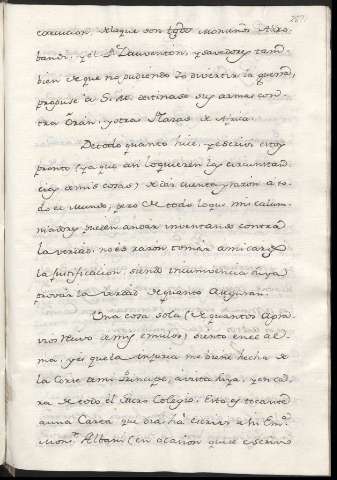 coricion, de la que son tgōs Monseñr Aldro-
bandi, y el Pe. Lauventon, y savedores tam-
bien de que no pudiendo Yo divertir la guerra,
propuse à S. M. destinase sus armas con-
tra Orán, y otras Plazas de Africa.
De todo quanto hice, y escriví estoy
pronto (ya que así lo quieren las circunstan-
cias de mis cosas) à dar cuenta, y razon a to-
do el Mundo, pero de todo lo que mis calum-
niadores pueden andar inventando contra
la verdad, no es razon tomar a mi cargo
la justificacion, siendo incumvencia suya
provar la verdad de quanto aseguran.
Una cosa sola (de quantos Agra-
vios recivo de mis emulos) siento en el al-
ma, y es que la injuria me viene hecha de
la Corte de mi Principe, à vista suya, y en ca-
ra de todo el Sacro Colegio. Esto es tocante
a una Carta que dia, há escriví a Su Emª.
Monr. Albani (en ocasion que se escrivio